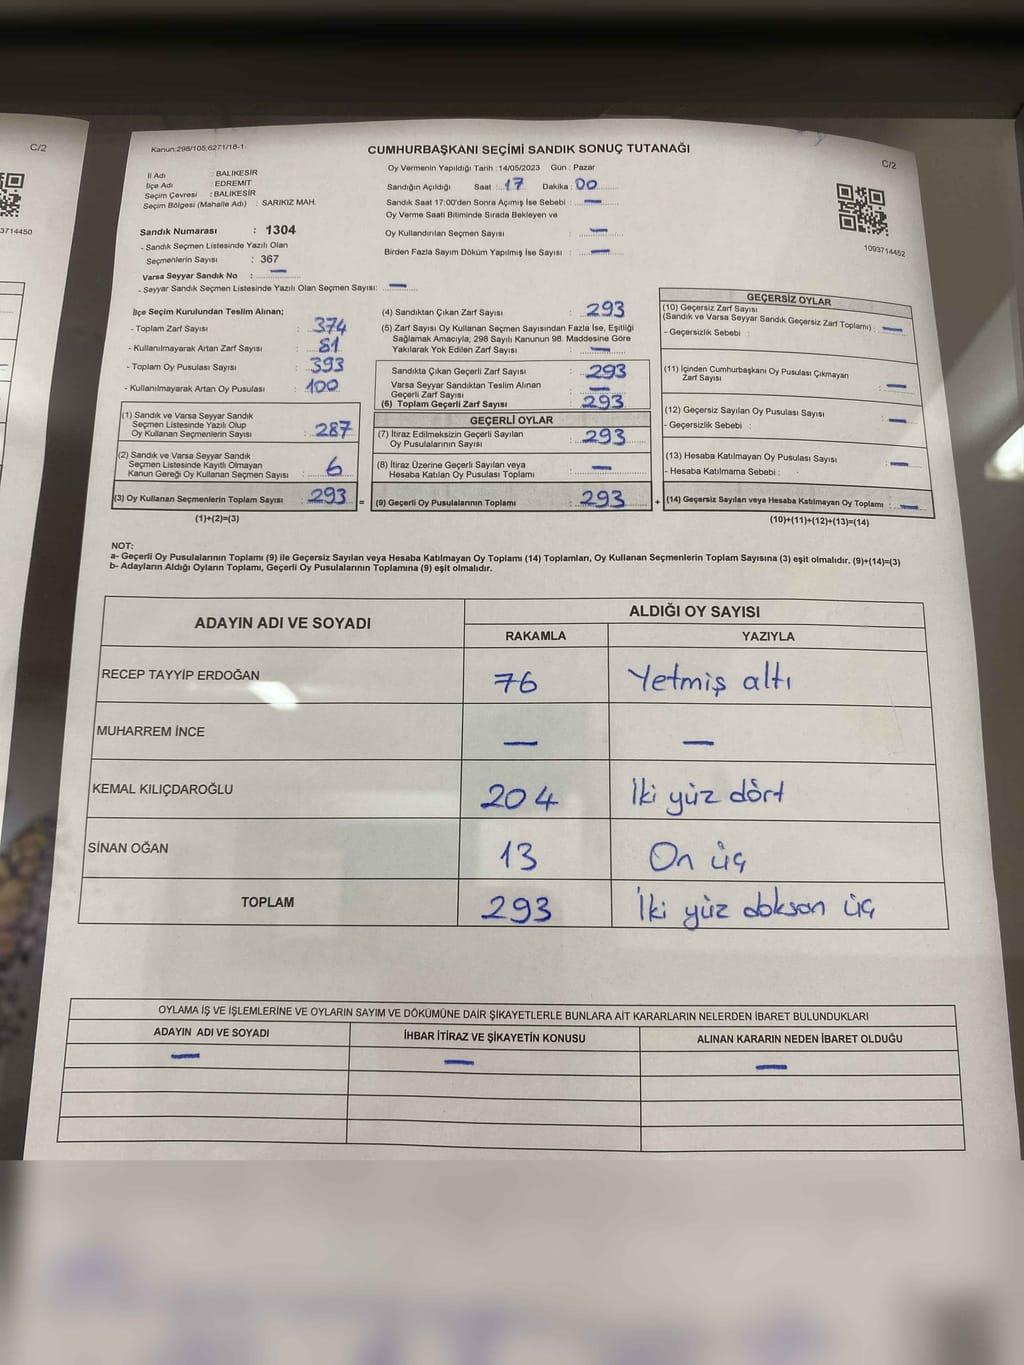 C/2
3714450
Kanun:298/105;6271/18-1
CUMHURBAŞKANI SEÇİMİ SANDIK SONUÇ TUTANAĞI
C/2
İl Adı : BALIKESİR
İlçe Adı : EDREMIT
Seçim Çevresi : BALIKESİR
Seçim Bölgesi (Mahalle Adı) : SARIKIZ MAH.
Oy Vermenin Yapıldığı Tarih :14/05/2023 Gün : Pazar
Sandığın Açıldığı Saat : 17 Dakika : 00
Sandık Saat 17:00'den Sonra Açımış İse Sebebi : —
Oy Verme Saati Bitiminde Sırada Bekleyen ve
Oy Kullandırılan Seçmen Sayısı : —
Birden Fazla Sayım Döküm Yapılmış İse Sayısı : —
1093714452
Sandık Numarası : 1304
- Sandık Seçmen Listesinde Yazılı Olan
Seçmenlerin Sayısı : 367
Varsa Seyyar Sandık No : —
- Seyyar Sandık Seçmen Listesinde Yazılı Olan Seçmen Sayısı: —
İlçe Seçim Kurulundan Teslim Alınan;
- Toplam Zarf Sayısı : 374
- Kullanılmayarak Artan Zarf Sayısı : 81
- Toplam Oy Pusulası Sayısı : 393
- Kullanılmayarak Artan Oy Pusulası : 100
(1) Sandık ve Varsa Seyyar Sandık
Seçmen Listesinde Yazılı Olup
Oy Kullanan Seçmenlerin Sayısı : 287
(2) Sandık ve Varsa Seyyar Sandık
Seçmen Listesinde Kayıtlı Olmayan
Kanun Gereği Oy Kullanan Seçmen Sayısı : 6
(3) Oy Kullanan Seçmenlerin Toplam Sayısı : 293 =
(1)+(2)=(3)
(4) Sandıktan Çıkan Zarf Sayısı : 293
(5) Zarf Sayısı Oy Kullanan Seçmen Sayısından Fazla İse, Eşitliği
Sağlamak Amacıyla; 298 Sayılı Kanunun 98. Maddesine Göre
Yakılarak Yok Edilen Zarf Sayısı : —
Sandıkta Çıkan Geçerli Zarf Sayısı : 293
Varsa Seyyar Sandıktan Teslim Alınan
Geçerli Zarf Sayısı : —
(6) Toplam Geçerli Zarf Sayısı : 293
GEÇERLİ OYLAR
(7) İtiraz Edilmeksizin Geçerli Sayılan
Oy Pusulalarının Sayısı : 293
(8) İtiraz Üzerine Geçerli Sayılan veya
Hesaba Katılan Oy Pusulası Toplamı : —
(9) Geçerli Oy Pusulalarının Toplamı : 293 +
GEÇERSİZ OYLAR
(10) Geçersiz Zarf Sayısı
(Sandık ve Varsa Seyyar Sandık Geçersiz Zarf Toplamı) : —
- Geçersizlik Sebebi :
(11) İçinden Cumhurbaşkanı Oy Pusulası Çıkmayan
Zarf Sayısı : —
(12) Geçersiz Sayılan Oy Pusulası Sayısı : —
- Geçersizlik Sebebi :
(13) Hesaba Katılmayan Oy Pusulası Sayısı : —
- Hesaba Katılmama Sebebi :
(14) Geçersiz Sayılan veya Hesaba Katılmayan Oy Toplamı : —
(10)+(11)+(12)+(13)=(14)
NOT:
a- Geçerli Oy Pusulalarının Toplamı (9) ile Geçersiz Sayılan veya Hesaba Katılmayan Oy Toplamı (14) Toplamları, Oy Kullanan Seçmenlerin Toplam Sayısına (3) eşit olmalıdır. (9)+(14)=(3)
b- Adayların Aldığı Oyların Toplamı, Geçerli Oy Pusulalarının Toplamına (9) eşit olmalıdır.
ADAYIN ADI VE SOYADI
ALDIĞI OY SAYISI
RAKAMLA YAZIYLA
RECEP TAYYİP ERDOĞAN 76 Yetmiş altı
MUHARREM İNCE — —
KEMAL KILIÇDAROĞLU 204 İki yüz dört
SİNAN OĞAN 13 On üç
TOPLAM 293 İki yüz doksan üç
OYLAMA İŞ VE İŞLEMLERİNE VE OYLARIN SAYIM VE DÖKÜMÜNE DAİR ŞİKAYETLERLE BUNLARA AİT KARARLARIN NELERDEN İBARET BULUNDUKLARI
ADAYIN ADI VE SOYADI İHBAR İTİRAZ VE ŞİKAYETİN KONUSU ALINAN KARARIN NEDEN İBARET OLDUĞU
— — —